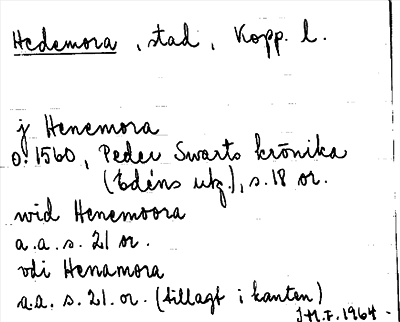 Hedemora, stad, Kopp. l.
j Henemora
o. 1560, Peder Swarts krönika
(Edéns utg.), s. 18 or.
wid Henemoora
a.a. s. 21 or.
vdi Henamora
a.a. s. 21. or. (tillagt i kanten)
J.H.F. 1964.